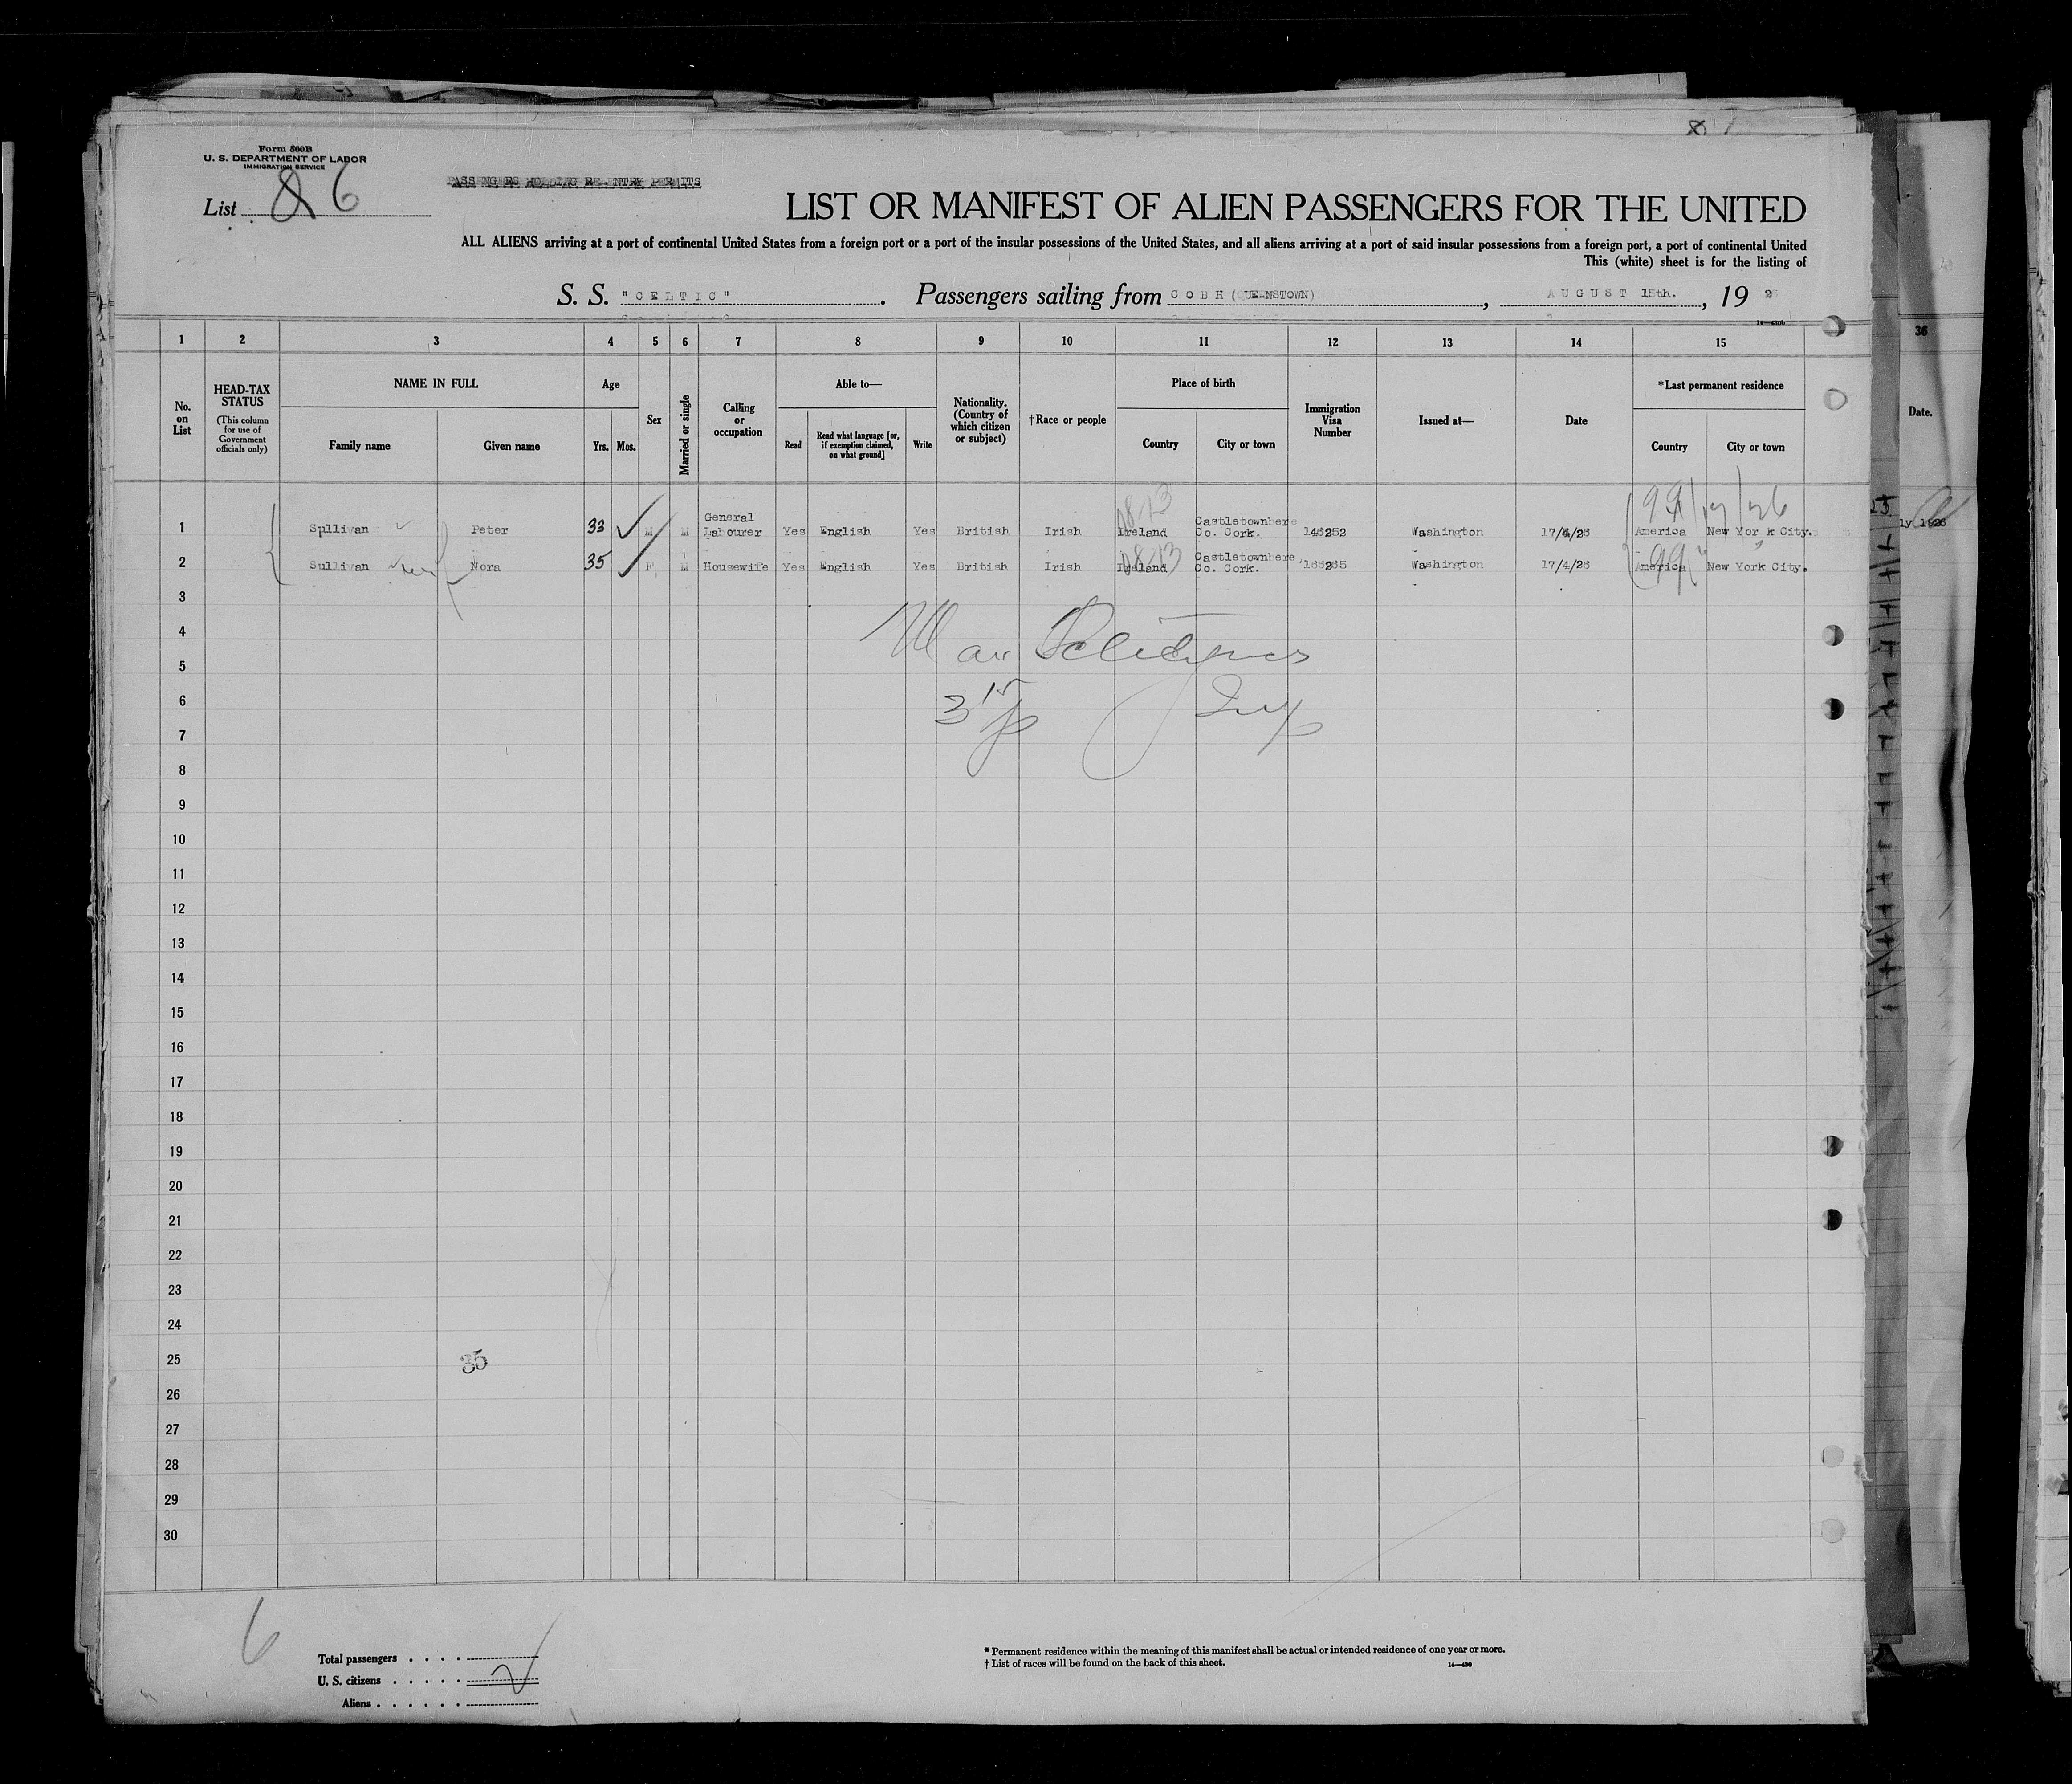 Form 500B
U. S. DEPARTMENT OF LABOR
IMMIGRATION SERVICE
List 86
PASSENGERS HOLDING RE-ENTRY PERMITS
LIST OR MANIFEST OF ALIEN PASSENGERS FOR THE UNITED
ALL ALIENS arriving at a port of continental United States from a foreign port or a port of the insular possessions of the United States, and all aliens arriving at a port of said insular possessions from a foreign port, a port of continental United
This (white) sheet is for the listing of
S. S. "CELTIC". Passengers sailing from COBH (QUEENSTOWN), AUGUST 15th., 19 2
1 2 3 4 5 6 7 8 9 10 11 12 13 14 15
36
No. on List
HEAD-TAX STATUS
(This column for use of Government officials only)
NAME IN FULL
Family name Given name
Age
Yrs. Mos.
Sex
Married or single
Calling or occupation
Able to—
Read
Read what language [or, if exemption claimed, on what ground]
Write
Nationality. (Country of which citizen or subject)
†Race or people
Place of birth
Country City or town
Immigration Visa Number
Issued at—
Date
*Last permanent residence
Country City or town
Date.
1 Spllivan Peter 33 M M General Labourer Yes English Yes British Irish Ireland Castletownbere Co. Cork. Washington 17/4/26 America New Yor k City.
2 Sullivan Nora 35 F M Housewife Yes English Yes British Irish Ireland Castletownbere, Co. Cork. Washington 17/4/26 America New York City.
3
4
5
6
7
8
9
10
11
12
13
14
15
16
17
18
19
20
21
22
23
24
25 35
26
27
28
29
30
6
Total passengers . . . .
U. S. citizens . . . . .
Aliens . . . . . .
* Permanent residence within the meaning of this manifest shall be actual or intended residence of one year or more.
† List of races will be found on the back of this sheet.
14—430